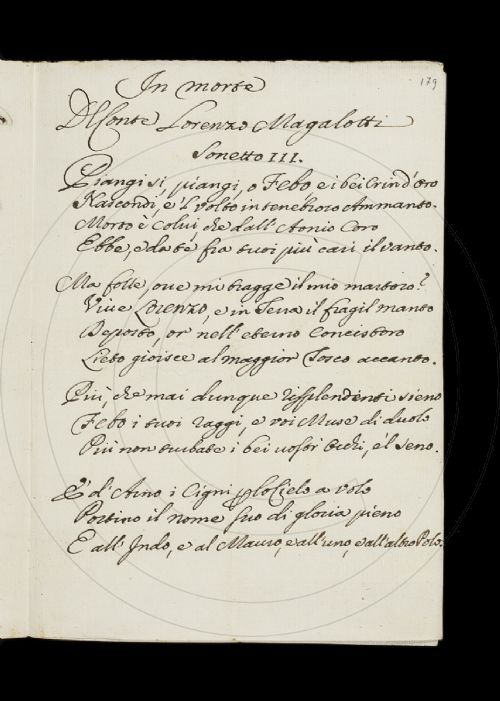 179
In morte
Del Conte Lorenzo Magalotti
Sonetto III.
Piangi si, piangi, o Febo, e i bei Crin d'Oro
Nascondi e 'l volto in tenebroso Ammanto.
Morto è Colui che dall' Aonio Coro
Ebbe, e da te fra tuoi più cari il vanto.
Ma folle, oue mi tragge il mio martoro?
Viue Lorenzo, e in Terra il fragil manto
Deposto, or' nell' eterno Concistoro
Lieto gioisce al maggior Tosco accanto.
Più, che mai dunque risplendenti sieno
Febo i tuoi raggi, e voi Muse di duolo
Più non turbate i bei vostri Occhi, e 'l Seno.
E d' Arno i Cigni per lo Cielo a volo
Portino il nome suo di gloria pieno
E all' Indo, e al Mauro, e all' uno, e all' altro Polo.